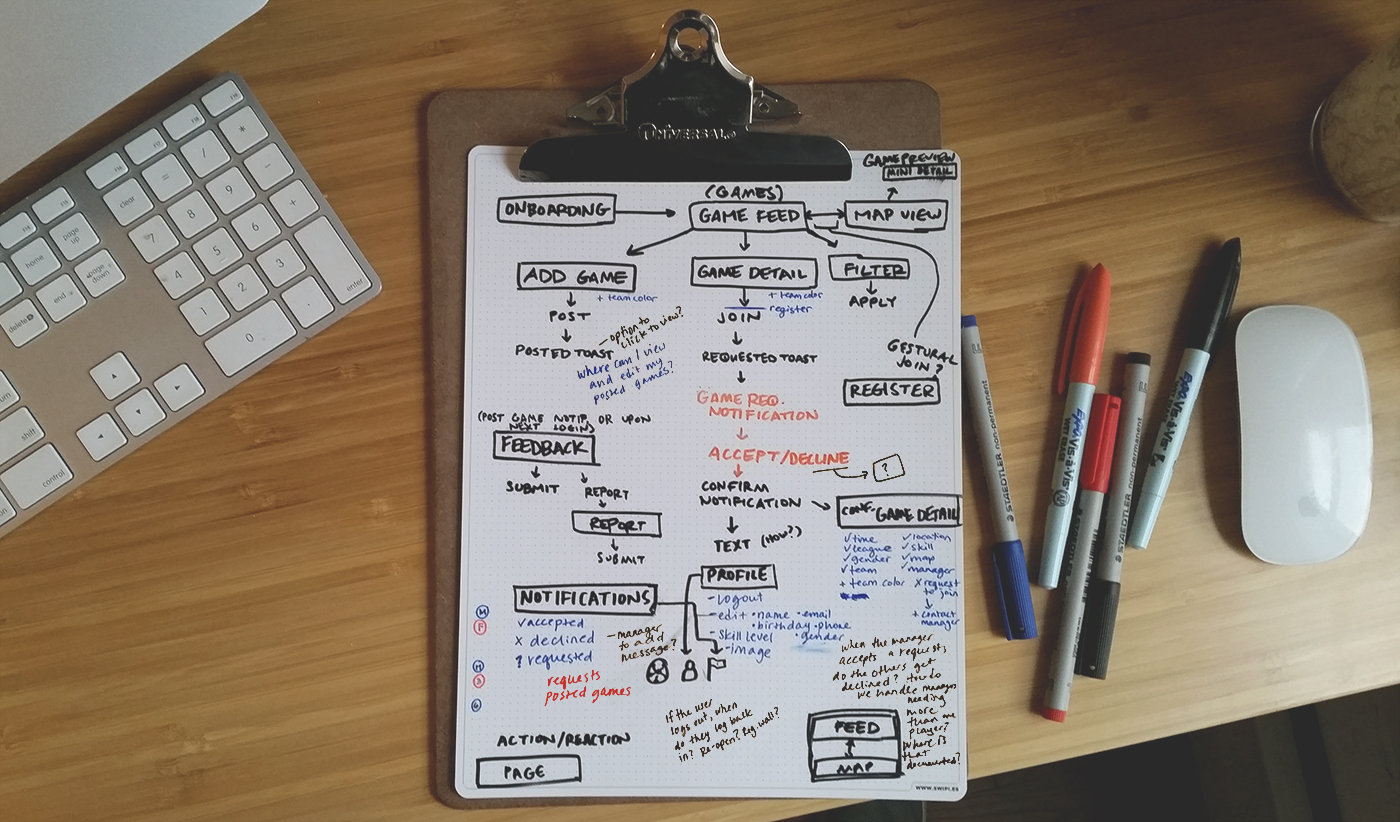 UNIVERSAL
GAME PREVIEW
MINI DETAIL
(GAMES)
ONBOARDING
GAME FEED
MAP VIEW
ADD GAME
GAME DETAIL
FILTER
+ team color
+ team color
register
APPLY
POST
JOIN
- option to
click to view?
POSTED TOAST
where can I view
and edit my
posted games?
REQUESTED TOAST
GESTURAL
JOIN?
REGISTER
GAME REQ.
NOTIFICATION
(POST GAME NOTIF. OR UPON
NEXT LOGIN)
FEEDBACK
ACCEPT/DECLINE
?
SUBMIT
REPORT
CONFIRM
NOTIFICATION
CONF. GAME DETAIL
REPORT
SUBMIT
TEXT (HOW?)
✓time
✓league
✓gender
✓team
+ team color
✓location
✓skill
✓map
✓manager
x request
to join
+ contact
manager
PROFILE
- Logout
- edit • name • email
• birthday • phone
- Skill level • gender
- image
NOTIFICATIONS
✓accepted
x declined
? requested
requests
posted games
- manager
to add
message?
M
F
M
3
6
when the manager
accepts a request,
do the others get
declined? How do
we handle manager
needing
more
than one
player?
Where is
that
documented?
If the user
logs out, when
do they log back
in? Re-open? Reg. wall?
ACTION/REACTION
PAGE
FEED
MAP
WWW.SWIPI.ES
fn
clear
=
/
*
7
8
9
-
4
5
6
+
1
2
3
0
.
enter
home
page
up
page
down
end
delete
shift
control
STAEDTLER non-permanent
EXPO Vis-à-Vis
WET ERASE
STAEDTLER non-permanent
EXPO Vis-à-Vis